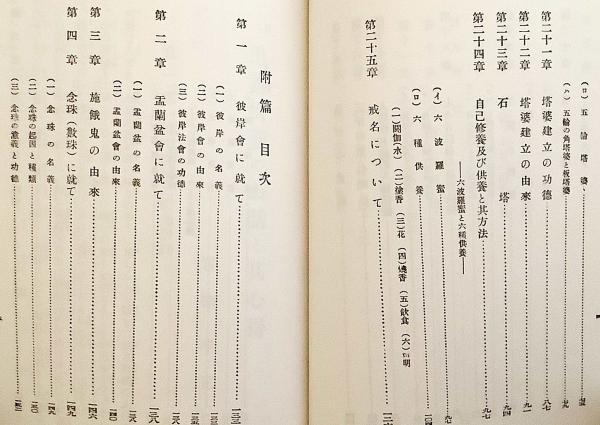 (ロ) 五輪塔婆
(ハ) 五輪の角塔婆と板塔婆
第二十一章 塔婆建立の功德 八七
第二十二章 塔婆建立の由來 九一
第二十三章 石塔 九四
第二十四章 自己修養及び供養と其方法 九七
——六波羅蜜と六種供養——
(イ) 六波羅蜜 九七
(ロ) 六種供養
(一)閼伽(水) (二)塗香 (三)花 (四)燒香 (五)飮食 (六)燈明
第二十五章 戒名について
附篇目次
第一章 彼岸會に就て 一三三
(一) 彼岸會の名義 一三三
(二) 彼岸會の由來 一三三
(三) 彼岸法會の功德 一三五
第二章 盂蘭盆會に就て 一三八
(一) 盂蘭盆會の名義 一三八
(二) 盂蘭盆會の由來 一四〇
第三章 施餓鬼の由來 一四六
第四章 念珠(數珠)に就て 一四九
(一) 念珠の名義 一四九
(二) 念珠の起因と種類 一五〇
(三) 念珠の意義と功德